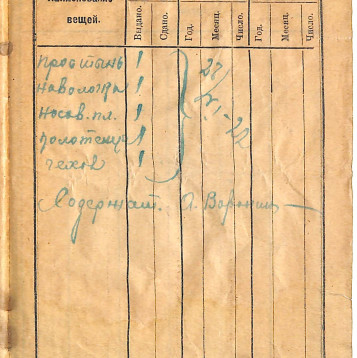 Наименование
вещей.
Выдано. Сдано. Год. Месяц. Число. Год. Месяц. Число.
простынь 1
наволочка 1
носов. пл. 1
полотенце 1
чехол 1
Содержат. А.